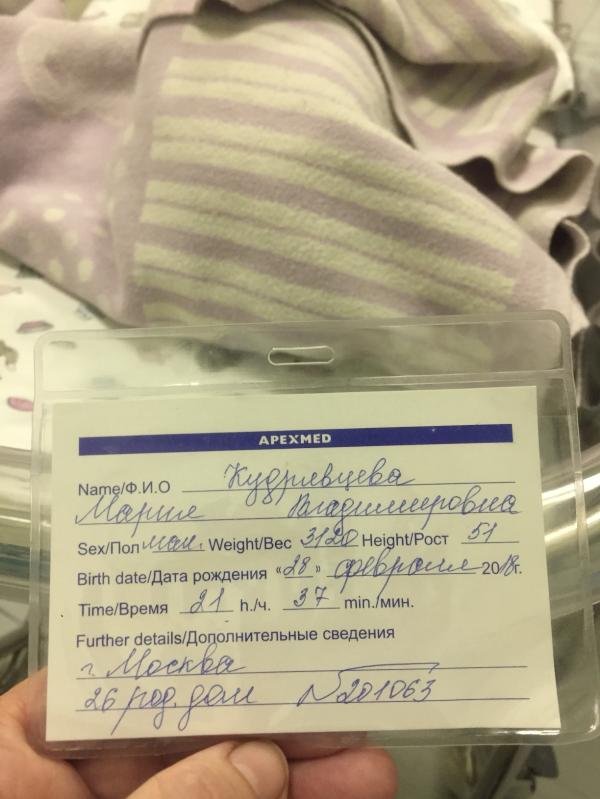 APEXMED
Name/Ф.И.О Кудрявцева
Мария Владимировна
Sex/Пол мал. Weight/Вес 3120 Height/Рост 51
Birth date/Дата рождения «28» февраля 2018г.
Time/Время 21 h./ч. 37 min./мин.
Further details/Дополнительные сведения
г. Москва
26 род. дом №201063